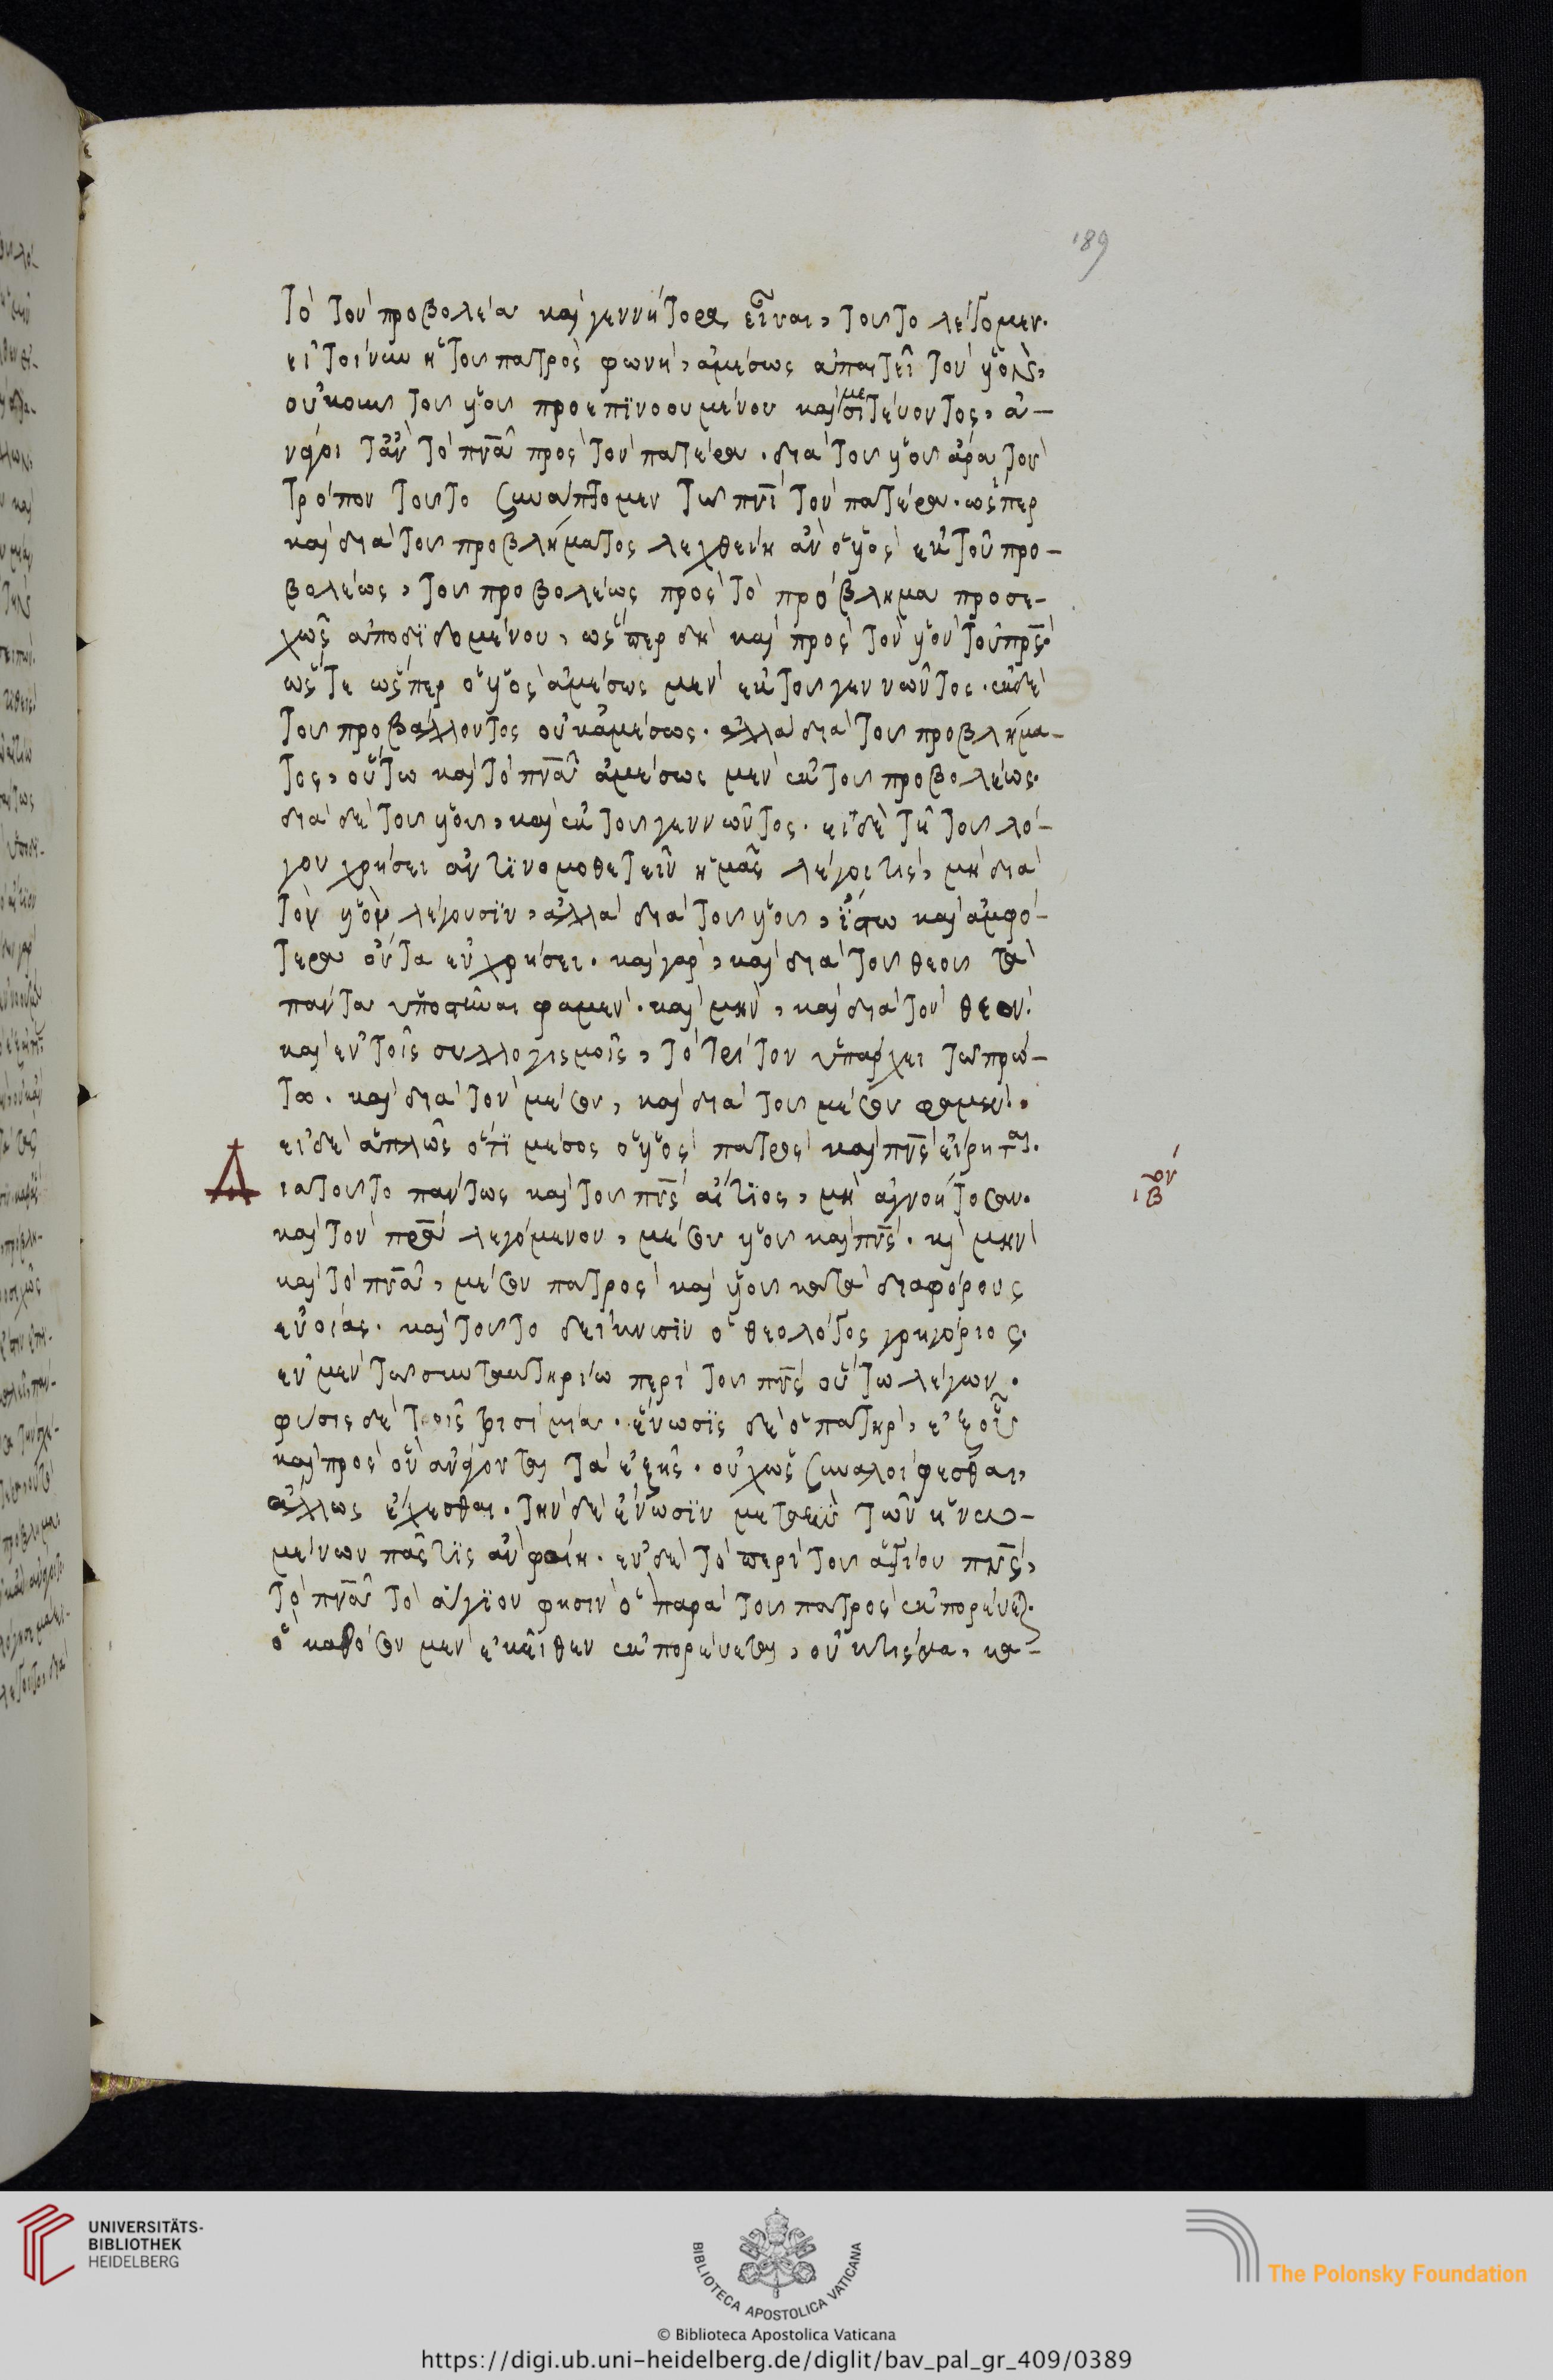 189
Τὸ τὸν προβολέα καὶ γεννήτορα εἶναι, τοῦτο λέγομεν.
εἰ τοίνυν ἡ τοῦ πατρὸς φωνὴ, ἀμέσως ἀπαιτεῖ τὸν υἱὸν,
οὐκοῦν τοῦ υἱοῦ προεπϊνοουμένου καὶ μεσιτέυοντος, ἀ-
νάγοι τἂν τὸ πνᾶ πρὸς τὸν πατέρα. διὰ τοῦ υἱοῦ ἄρα τὸν
τρόπον τοῦτο συνάπτομεν τῶ πνι τὸν πατέρα. ὥσπερ
καὶ διὰ τοῦ προβλήματος λεχθείη ἂν ὁ υἱὸς ἐκ τοῦ προ-
βολέως, τοῦ προβολέως πρὸς τὸ πρόβλημα προσε-
χῶς ἀποδϊδομένου, ὥσπερ δὴ καὶ πρὸς τὸν υἱὸν τοῦ πρς.
ὥστε ὥσπερ ὁ υἱὸς ἀμέσως μὲν ἐκ τοῦ γεννῶντος. ἐκ δὲ
τοῦ προβάλλοντος οὐκ ἀμέσως. ἀλλὰ διὰ τοῦ προβλήμα-
τος, οὕτω καὶ τὸ πνᾶ ἀμέσως μὲν ἐκ τοῦ προβολέως.
διὰ δὲ τοῦ υἱοῦ, καὶ ἐκ τοῦ γεννῶντος. εἰ δὲ τῆ τοῦ λό-
γου χρήσει ἀντϊνομοθετεῖν ἡμᾶς λέγοι τις, μὴ διὰ
τὸν υἱὸν λέγουσϊν, ἀλλὰ διὰ τοῦ υἱοῦ, ἴστω καὶ ἀμφό-
τερα ὄντα ἐν χρήσει. καὶ γὰρ, καὶ διὰ τοῦ θεοῦ τὰ
πάντα ὑποστῆναι φαμὲν. καὶ μὴν, καὶ διὰ τὸν θεὸν.
καὶ ἐν τοῖς συλλογισμοῖς, τὸ τρίτον ὑπάρχει τῶ πρώ-
τω. καὶ διὰ τὸν μέσον, καὶ διὰ τοῦ μέσου φαμὲν.
εἰ δὲ ἁπλῶς ὅτϊ μέσος ὁ υἱὸς πατρὸς καὶ πνς εἴρηται.
Δ ιατοῦτο πάντως καὶ τοῦ πνς αἴτϊος, μὴ ἀγνοήτωσαν.
ιβ ον
καὶ τὸν πρα λεγόμενον, μέσον υἱοῦ καὶ πνς. κὶ μὴν
καὶ τὸ πνᾶ, μέσον πατρὸς καὶ υἱοῦ κατὰ διαφόρους
ἐνοίας. καὶ τοῦτο δείκνυσϊν ὁ θεολόγος γρηγόριος.
ἐν μὲν τῶ συντακτηρίω περὶ τοῦ πνς οὕτω λέγων.
φύσις δὲ τοῖς τρισὶ μία. ἕνωσϊς δὲ ὁ πατὴρ, ἐξ οὗ
καὶ πρὸς ὃν ἀνάγονται τὰ ἑξῆς. οὐχ ὡς συναλοίφεσθαι,
ἀλλ ὡς ἔχεσθαι. τὴν δὲ ἕνωσϊν μεταξὺ τῶν ἡνω-
μένων πᾶς τϊς ἂν φαίη. ἐν δὲ τὸ περὶ τοῦ ἁγίου πνς,
τὸ πνᾶ τὸ ἅγϊον φησὶν ὃ παρὰ τοῦ πατρὸς ἐκπορέυεται.
ὃ καθόσον μὲν ἐκεῖθεν ἐκπορέυεται, οὐ κτίσμα, κα-
UNIVERSITÄTS-
BIBLIOTHEK
HEIDELBERG
BIBLIOTECA APOSTOLICA VATICANA
The Polonsky Foundation
© Biblioteca Apostolica Vaticana
https://digi.ub.uni-heidelberg.de/diglit/bav_pal_gr_409/0389